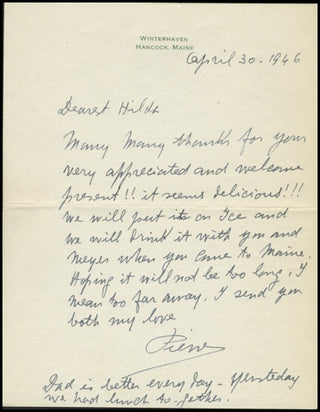 WINTERHAVEN
HANCOCK, MAINE
April 30 - 1946
Dearest Hilda
Many Many thanks for your
very appreciated and welcome
present!! it seems delicious!!!
we will put it on Ice and
we will drink it with you and
Meyer when you come to Maine.
Hoping it will not be too long, I
mean too far away. I send you
both my love
Pierre
Dad is better every day - Yersteday
we had lunch to-gether.